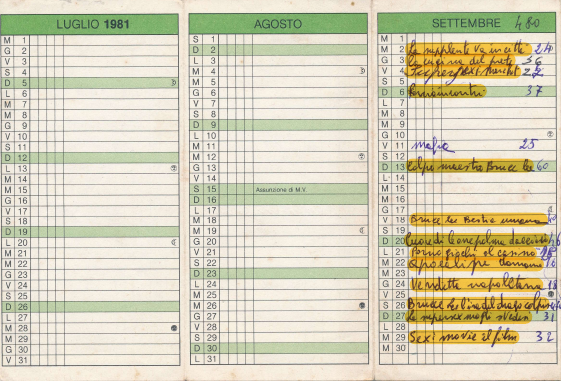 LUGLIO 1981
M 1
G 2
V 3
S 4
D 5
L 6
M 7
M 8
G 9
V 10
S 11
D 12
L 13
M 14
M 15
G 16
V 17
S 18
D 19
L 20
M 21
M 22
G 23
V 24
S 25
D 26
L 27
M 28
M 29
G 30
V 31
AGOSTO
S 1
D 2
L 3
M 4
M 5
G 6
V 7
S 8
D 9
L 10
M 11
M 12
G 13
V 14
S 15 Assunzione di M.V.
D 16
L 17
M 18
M 19
G 20
V 21
S 22
D 23
L 24
M 25
M 26
G 27
V 28
S 29
D 30
L 31
SETTEMBRE 480
M 1
M 2 La supplente va in città 24
G 3 la cugina del prete 36
V 4
S 5
D 6 Pornoincontri 37
L 7
M 8
M 9
G 10
V 11 mafia 25
S 12
D 13 Colpo maestro Bruce Lee 60
L 14
M 15
M 16
G 17
V 18 Bruce Lee Bestia umana
S 19
D 20
L 21 Porno giochi al casino
M 22 Apocalipse domani
M 23
G 24 Vendetta napoletana 18
V 25
S 26 Bruce Lee l'ira del drago colpisce
D 27 31
L 28
M 29 Sexi movie il film 32
M 30